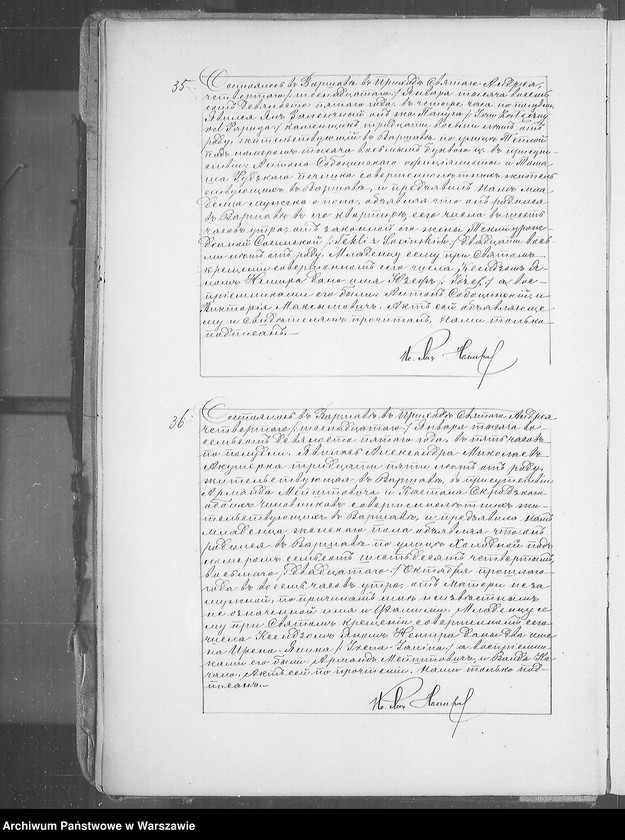 35.
Состоялось въ Варшавѣ въ Приходѣ Святаго Андрея,
четвертаго /: шестнадцатаго :/ Января тысяча восемь
сотъ девяносто пятаго года въ четыре часа по полудни.
Явился Янъ
vel Papuga / каменщикъ тридцати восьми лѣтъ отъ
роду, жительствующій въ Варшавѣ по улицѣ Теплой
подъ номеромъ тысяча восьмымъ буквою ц. въ присут
ствіи: Антона Собоцинскаго и Тома
ша печника совершеннолѣтнихъ житель
ствующихъ въ Варшавѣ, и предъявилъ намъ мла
денца мужескаго пола, объявляя что онъ родился
въ Варшавѣ въ его квартирѣ, сего числа въ шесть
часовъ утра, отъ законной его жены Теклы урож
денной Сосинской /: Tekli z Sosińskich :/ двадцати вось
ми лѣтъ отъ роду. Младенцу сему при Святомъ
крещеніи совершенномъ сего числа Ксендзомъ Я
номъ Немира дано имя Юзефъ /: Józef :/ а вос
пріемниками его были: Антонъ Собоцинскій и
Викторія Максымовичъ. Актъ сей объявляюще
му и свидѣтелямъ прочитанъ, нами только
подписанъ.—
Кс. Янъ Немира
36.
Состоялось въ Варшавѣ въ Приходѣ Святаго Андрея
четвертаго /: шестнадцатаго :/ Января тысяча во
семьсотъ девяносто пятаго года, въ пять часовъ
по полудни. Явилась Александра Миколаевъ
Акушерка тридцати пяти лѣтъ отъ роду,
жительствующая въ Варшавѣ, въ присутствіи
Арманда Мейштовича и Каетана Скродзкаго
обоихъ чиновниковъ совершеннолѣтнихъ жи
тельствующихъ въ Варшавѣ, и предъявила намъ
младенца женскаго пола объявляя что онъ
родился въ Варшавѣ по улицѣ Холодной подъ
номеромъ семьсотъ шестьдесятъ четвертымъ,
восьмаго /: двадцатаго :/ Октября прошлаго
года въ восемь часовъ утра, отъ матери неза
мужной, по причинамъ мнѣ неизвѣстнымъ
не означенной имя и фамиліи. Младенцу се
му при Святомъ крещеніи совершенномъ сего
числа Ксендзомъ Яномъ Немира даны два име
на Ирена-Янина /: Irena-Janina :/ а воспріемни
ками его были: Армандъ Мейштовичъ и Ванда
Актъ сей по прочтеніи, нами только под
писанъ.—
Кс. Янъ Немира
Archiwum Państwowe w Warszawie